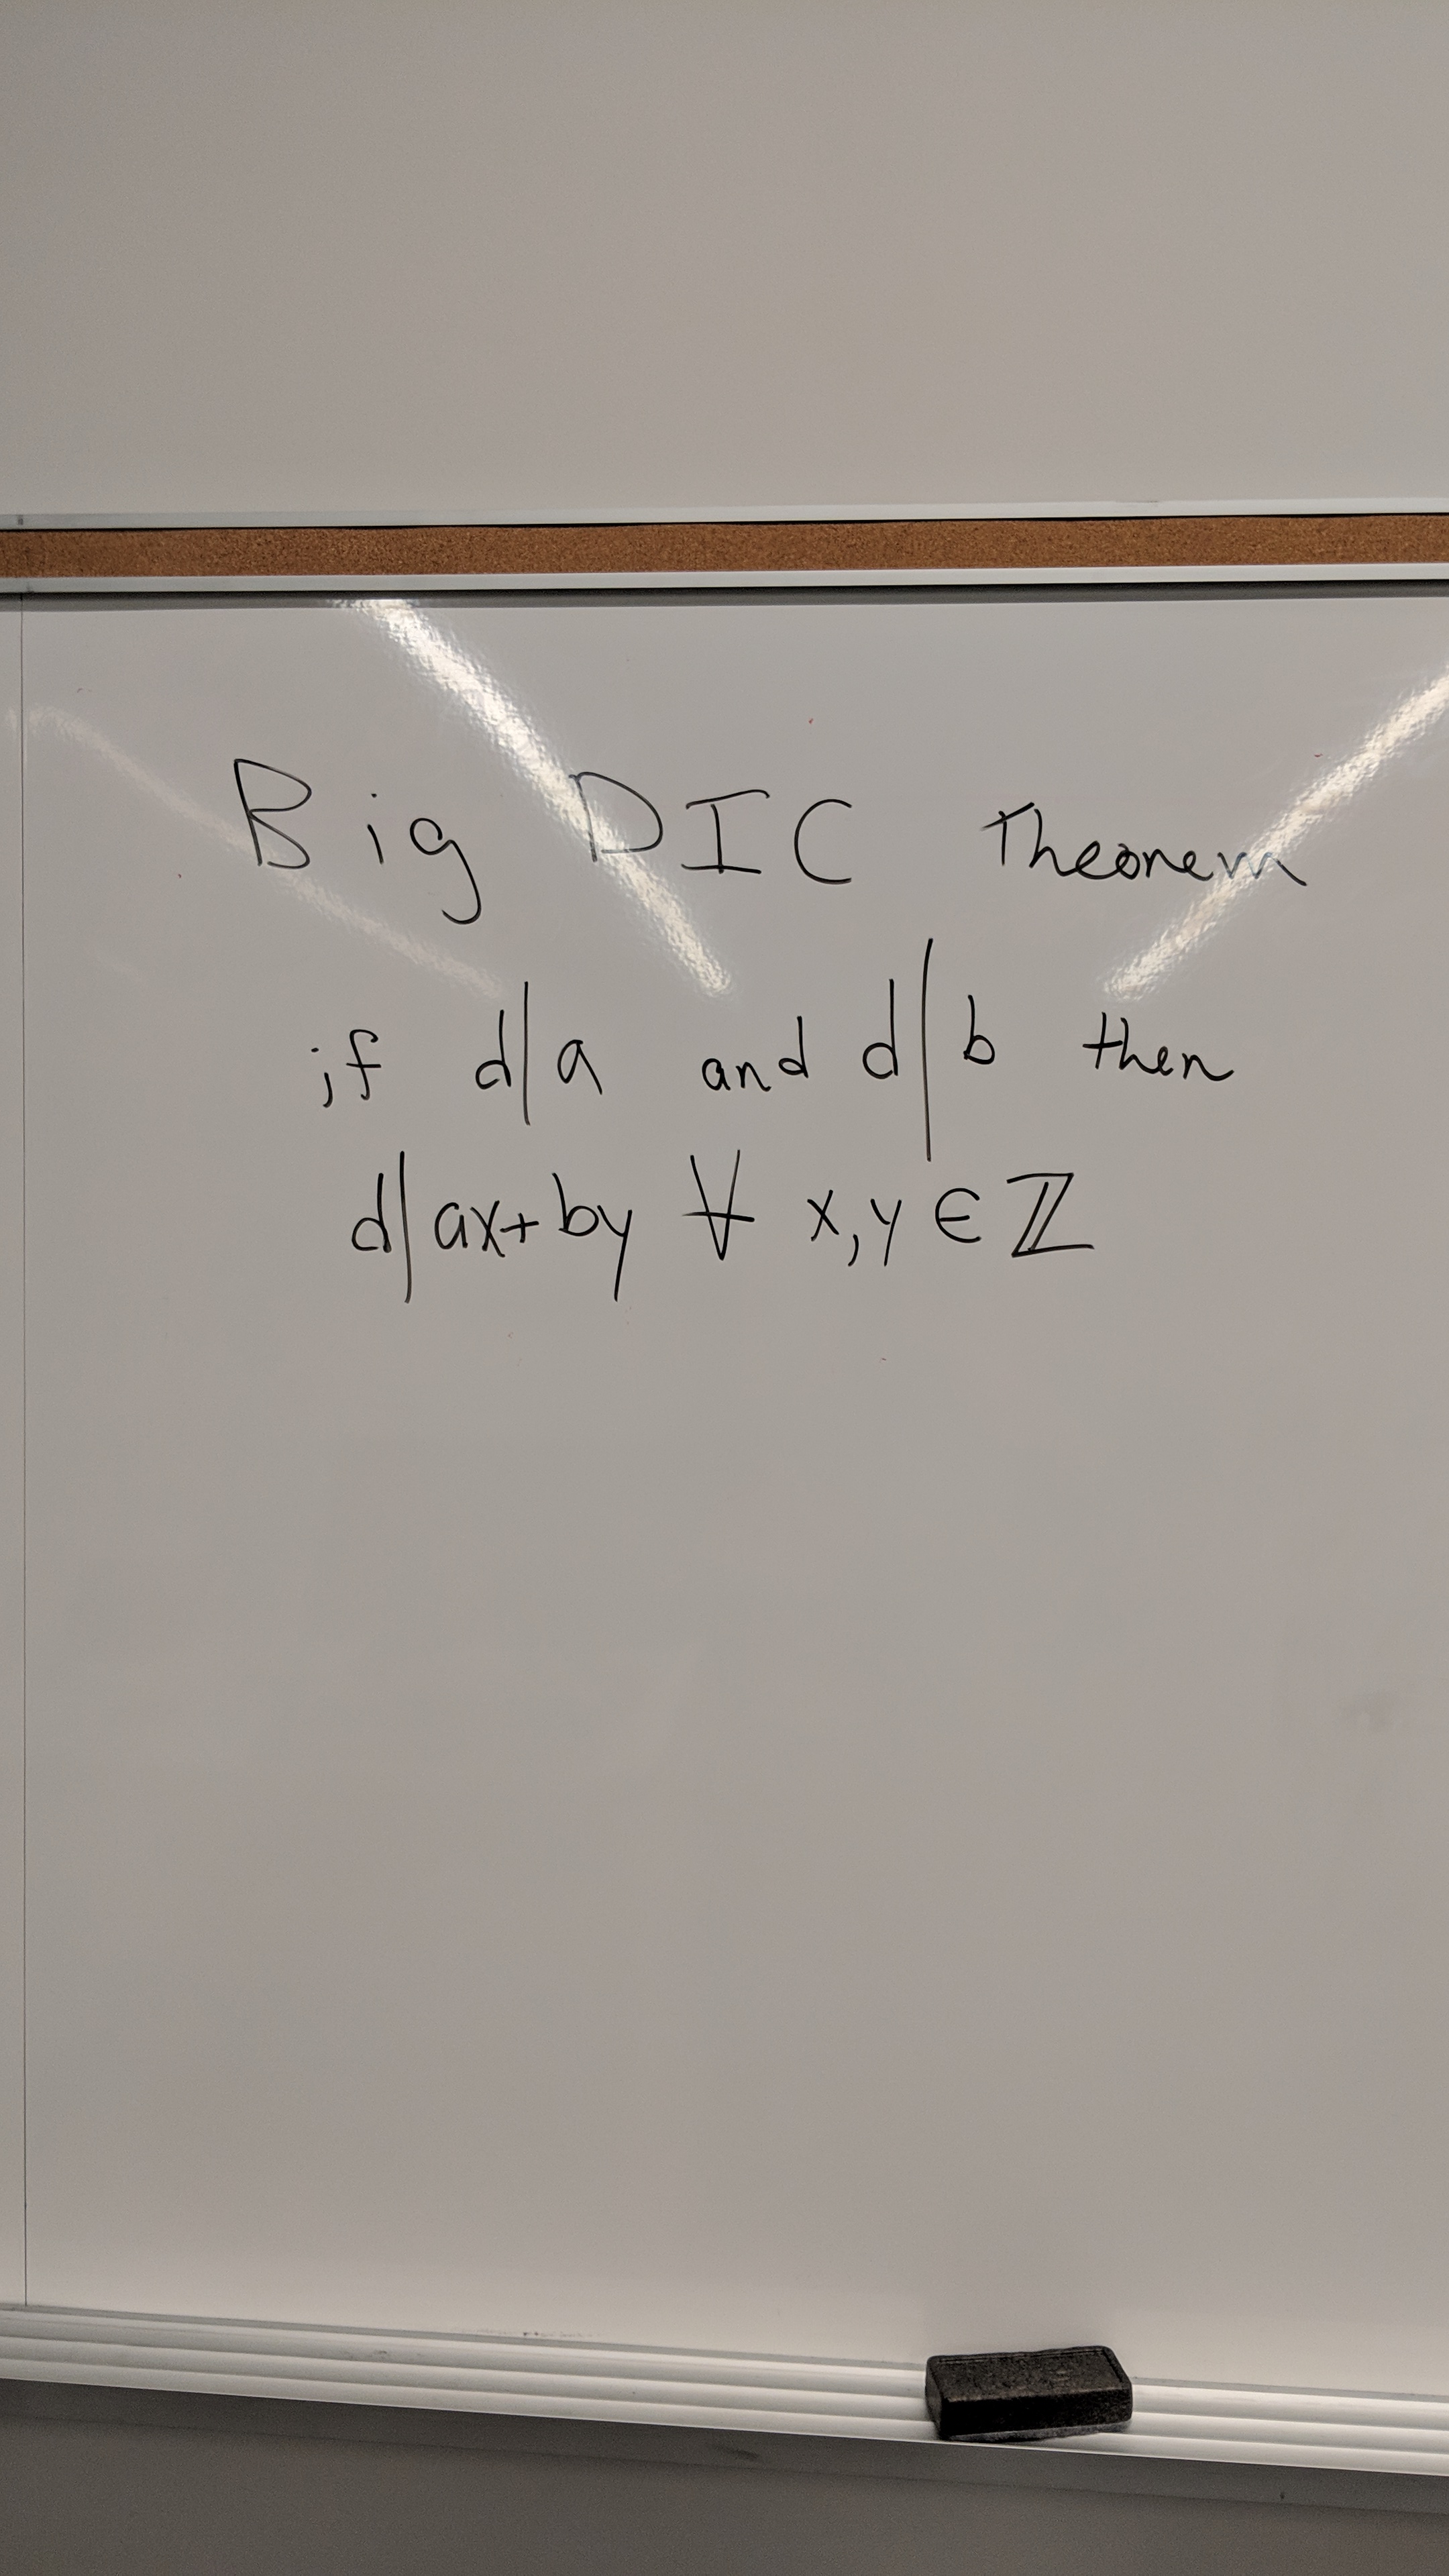 Big DIC Theorem
if d|a and d|b then
d|ax+by ∀ x,y ∈ ℤ